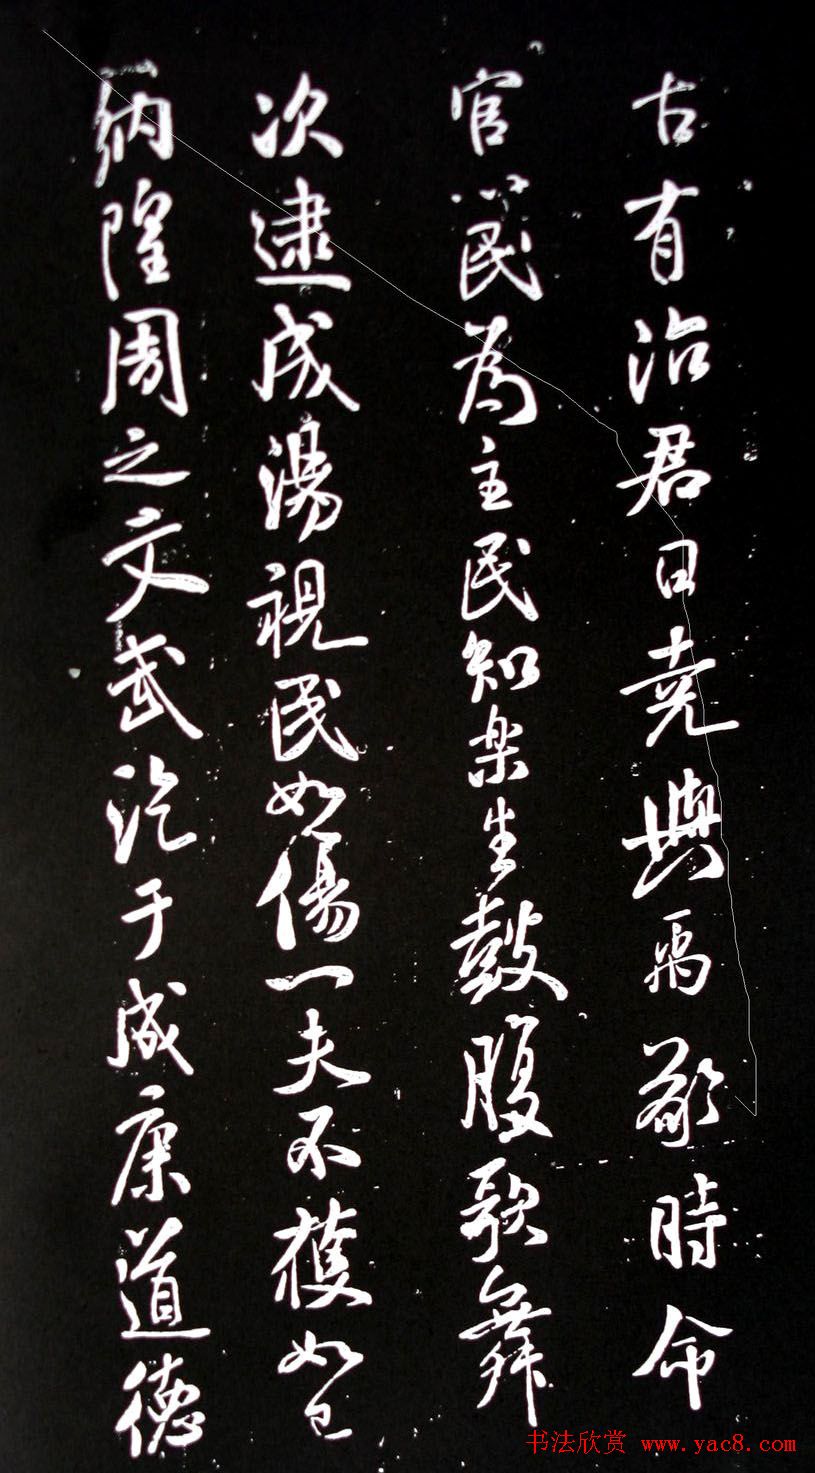 古有治君曰堯與禹敬時命
官以民為主民知樂生鼓腹歌舞
次逮成湯視民如傷一夫不獲如己
納隍周之文武迄于成康道德
书法欣赏 www.yac8.com